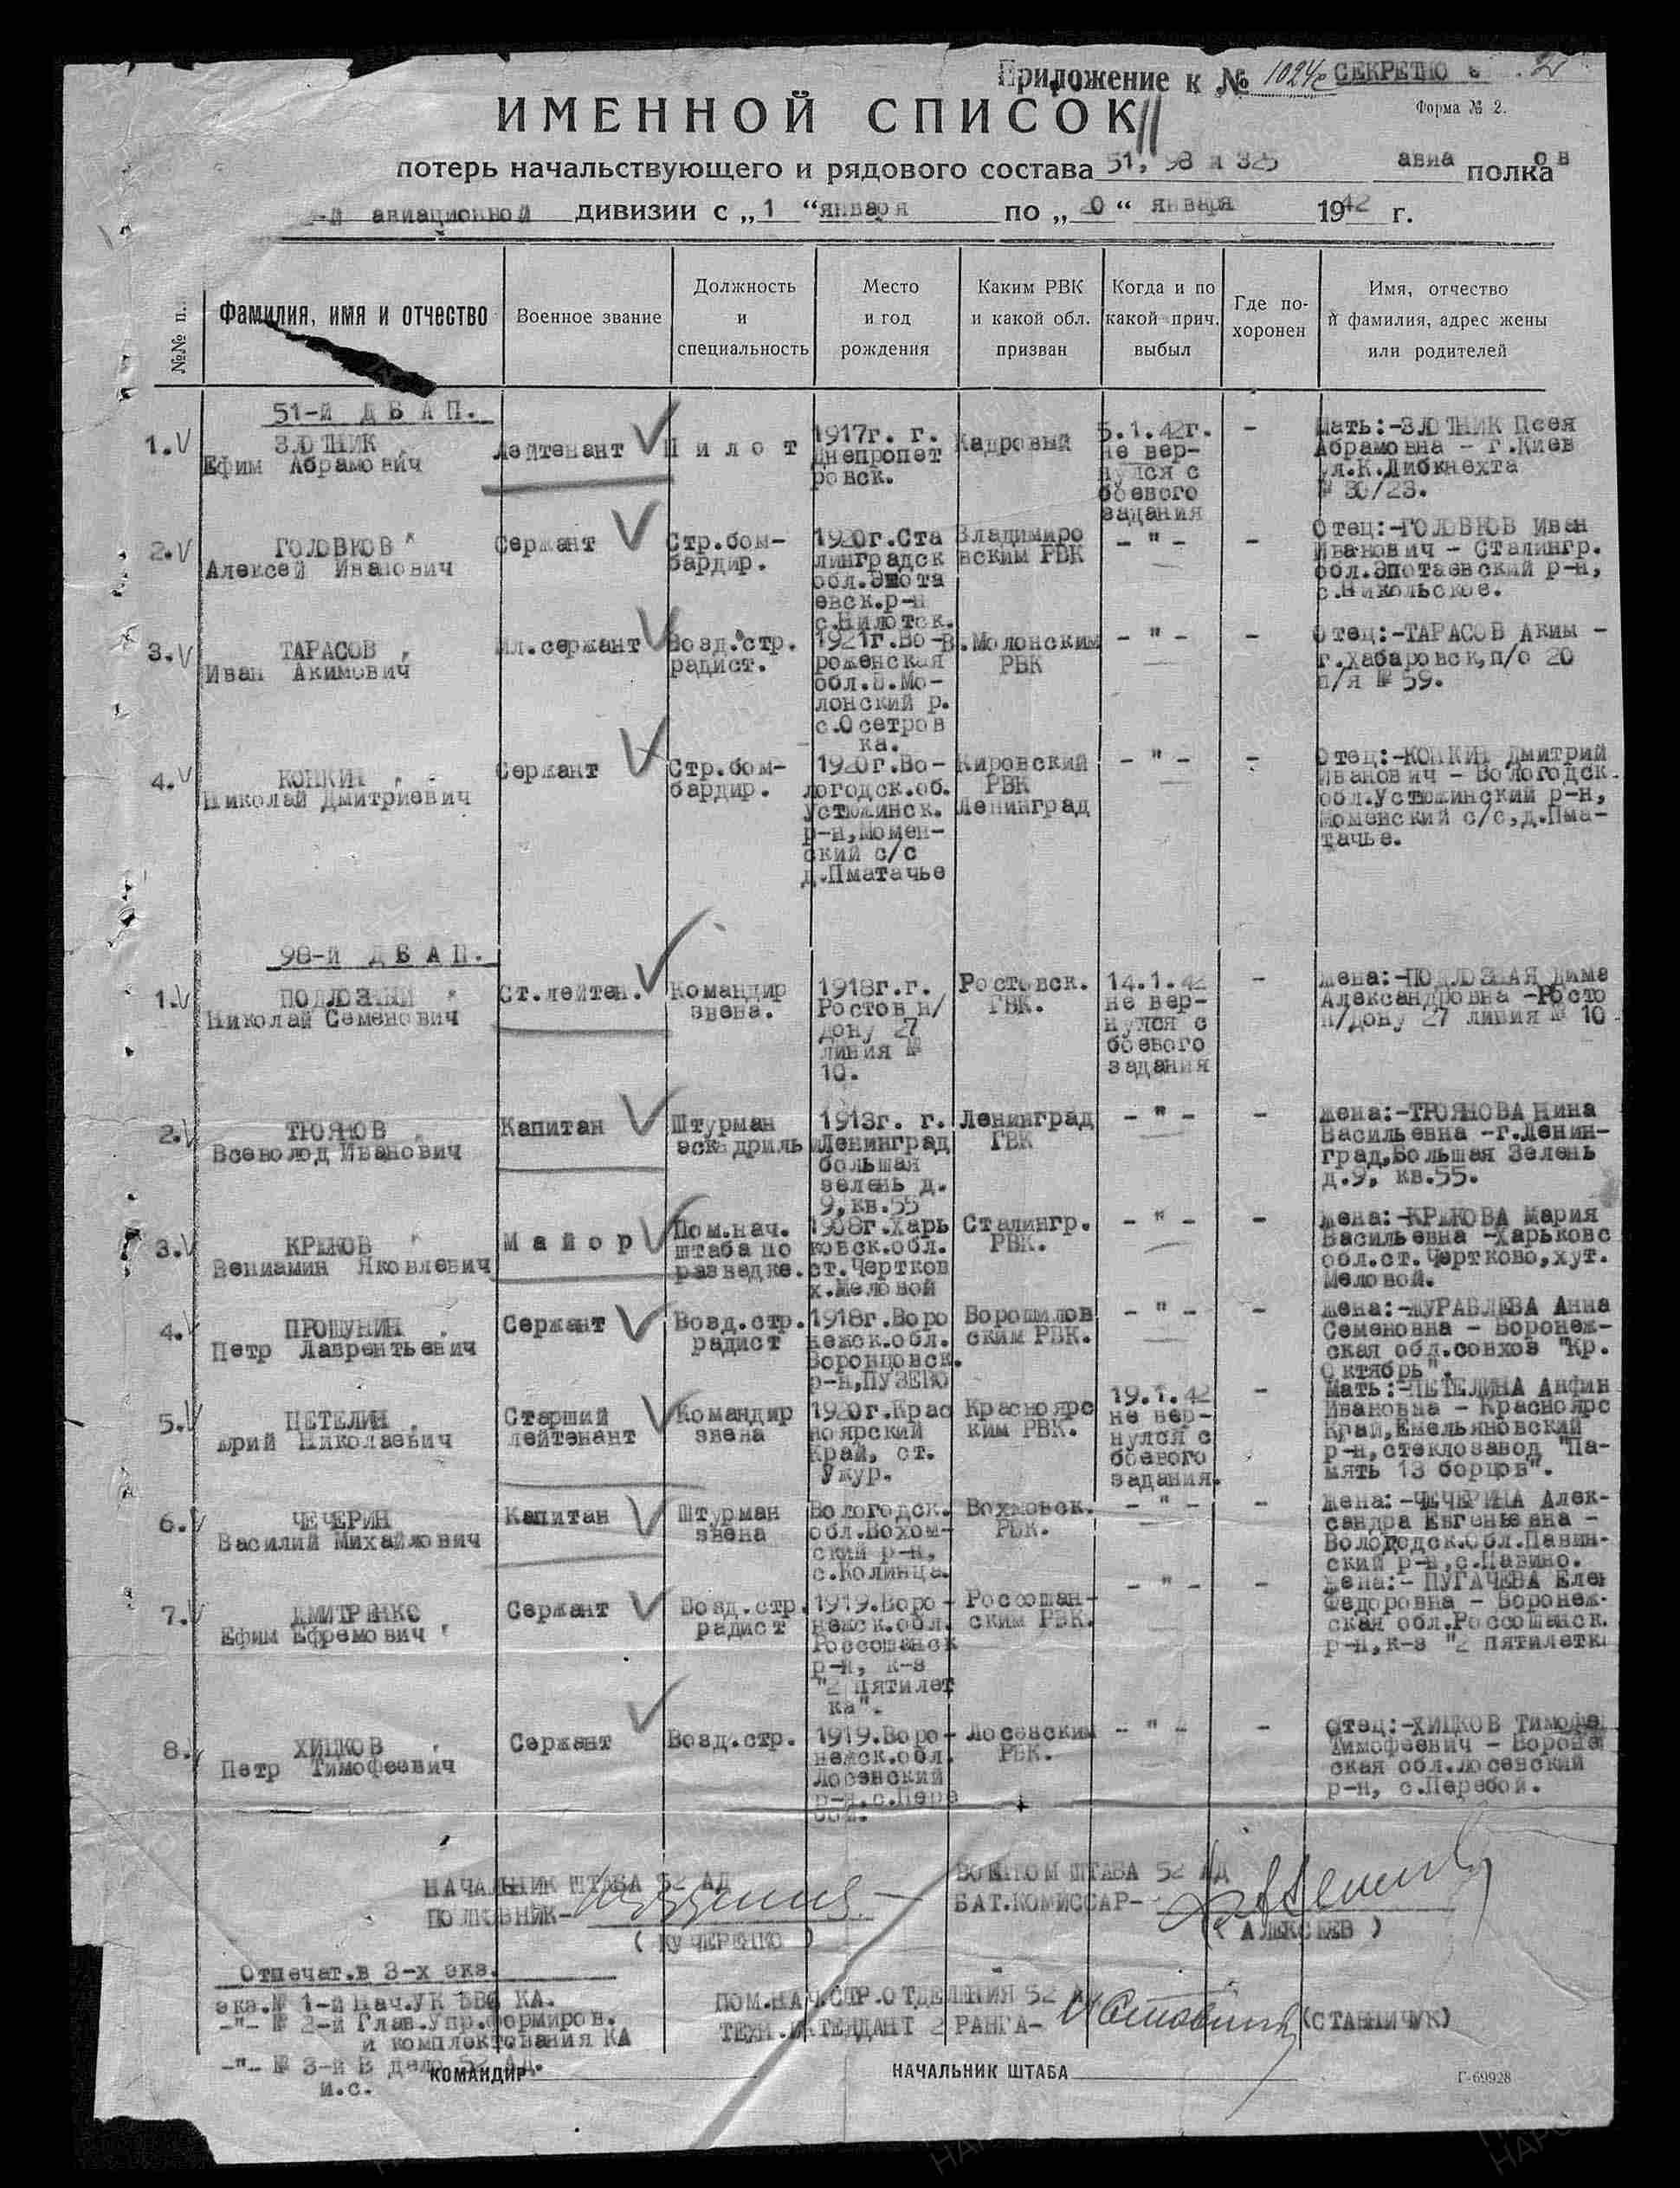 Приложение к № 1024с СЕКРЕТНО
Форма № 2.
ИМЕННОЙ СПИСОК
потерь начальствующего и рядового состава 51, 98 и 325 авиа полка ов
-й авиационной дивизии с „1“ января по „20“ января 1942 г.
№№ п.
Фамилия, имя и отчество
Военное звание
Должность
и
специальность
Место
и год
рождения
Каким РВК
и какой обл.
призван
Когда и по
какой прич.
выбыл
Где по-
хоронен
Имя, отчество
и фамилия, адрес жены
или родителей
51-й ДБАП.
1.
ЗЛОТНИК
Ефим Абрамович
Лейтенант
Пилот
1917г. г.
Днепропет
ровск.
Кадровый
5.1.42г.
не вер-
нулся с
боевого
задания
-
Мать:-ЗЛОТНИК Песя
Абрамовна - г.Киев
ул.К.Либкнехта
№ 30/23.
2.
ГОЛОВКОВ
Алексей Иванович
Сержант
Стр.бом-
бардир.
1920г.Ста
линградск
обл.Энота
евск.р-н
с.Нилотск.
Владимиро
вским РВК
- " -
-
Отец:-ГОЛОВКОВ Иван
Иванович - Сталингр.
обл.Энотаевский р-н,
с.Никольское.
3.
ТАРАСОВ
Иван Акимович
Мл.сержант
Возд.стр.
радист.
1921г.Во-
роженская
обл.В.Мо-
лонский р.
с.Осетров
ка.
В.Молонским
РВК
- " -
-
Отец:-ТАРАСОВ Аким -
г.Хабаровск,п/о 20
п/я № 59.
4.
КОНКИН
Николай Дмитриевич
Сержант
Стр.бом-
бардир.
1920г.Во-
логодск.об.
Устюжинск.
р-н,Момен-
ский с/с
д.Пматачье
Кировский
РВК
Ленинград
- " -
-
Отец:-КОНКИН Дмитрий
Иванович - Вологодск.
обл.Устюжинский р-н,
Моменский с/с,д.Пма-
тачье.
98-й ДБАП.
1.
ПОДЛОЗНЫЙ
Николай Семенович
Ст.лейтен.
Командир
звена.
1918г.г.
Ростов н/
дону 27
линия №
10.
Ростовск.
ГВК.
14.1.42
не вер-
нулся с
боевого
задания
-
Жена:-ПОДЛОЗНАЯ Дима
Александровна -Росто
н/дону 27 линия № 10
2.
ТРОЯНОВ
Всеволод Иванович
Капитан
Штурман
эскадриль
1913г. г.
Ленинград
большая
зелень д.
9,кв.55
Ленинград
ГВК
- " -
-
Жена:-ТРОЯНОВА Нина
Васильевна -г.Ленин-
град,Большая Зелень
д.9, кв.55.
3.
КРЮКОВ
Вениамин Яковлевич
Майор
Пом.нач.
штаба по
разведке.
1908г.Харь
ковск.обл.
ст.Чертков
х.Меловой
Сталингр.
РВК.
- " -
-
Жена:-КРЮКОВА Мария
Васильевна -Харьковс
обл.ст.Чертково,хут.
Меловой.
4.
ПРОШУНИН
Петр Лаврентьевич
Сержант
Возд.стр.
радист
1918г.Воро
нежск.обл.
Воронцовск.
р-н,ПУЗЕВО
Ворошилов
ским РВК.
- " -
-
Жена:-ЖУРАВЛЕВА Анна
Семеновна - Воронеж-
ская обл.совхоз "Кр.
Октябрь".
5.
ПЕТЕЛИН
Юрий Николаевич
Старший
лейтенант
Командир
звена
1920г.Крас
ноярский
Край, ст.
Ужур.
Красноярс
ким РВК.
19.1.42
не вер-
нулся с
боевого
задания.
-
Мать:-ПЕТЕЛИНА Анфин
Ивановна - Красноярс
Край,Емельяновский
р-н,стеклозавод "Па-
мять 13 борцов".
6.
ЧЕЧЕРИН
Василий Михайлович
Капитан
Штурман
звена
Вологодск.
обл.Вохом-
ский р-н,
с.Колинца.
Вохмовск.
РВК.
- " -
-
Жена:-ЧЕЧЕРИНА Алек-
сандра Евгеньевна -
Вологодск.обл.Павин-
ский р-н,с.Павино.
7.
ДМИТРЕНКО
Ефим Ефремович
Сержант
Возд.стр.
радист
1919.Воро-
нежск.обл.
Россошанск
р-н, к-з
"2 пятилет
ка".
Россошан-
ским РВК.
- " -
-
Жена:- ПУГАЧЕВА Елен
Федоровна - Воронеж-
ская обл.Россошанск.
р-н,к-з "2 пятилетка
8.
ХИЦКОВ
Петр Тимофеевич
Сержант
Возд.стр.
1919.Воро-
нежск.обл.
Лосевский
р-н.с.Пере
бой.
Лосевским
РВК.
- " -
-
Отец:-ХИЦКОВ Тимофе
Тимофеевич - Вороне
ская обл.Лосевский
р-н, с.Перебой.
НАЧАЛЬНИК ШТАБА 52 АД
ПОЛКОВНИК-
( КУЧЕРЕНКО )
ВОЕНКОМ ШТАБА 52 АД
БАТ.КОМИССАР-
( АЛЕКСЕЕВ )
Отпечат.в 3-х экз.
экз.№ 1-й Нач.УК ВВС КА.
-"- № 2-й Глав.Упр.формиров.
и комплектования КА
-"- № 3-й В дело 52 АД.
и.с.
ПОМ.НАЧ.СТР.ОТДЕЛЕНИЯ 52 АД
ТЕХН.ИНТЕНДАНТ 2 РАНГА-
(СТАВНИЧУК)
КОМАНДИР
НАЧАЛЬНИК ШТАБА
Г-69928